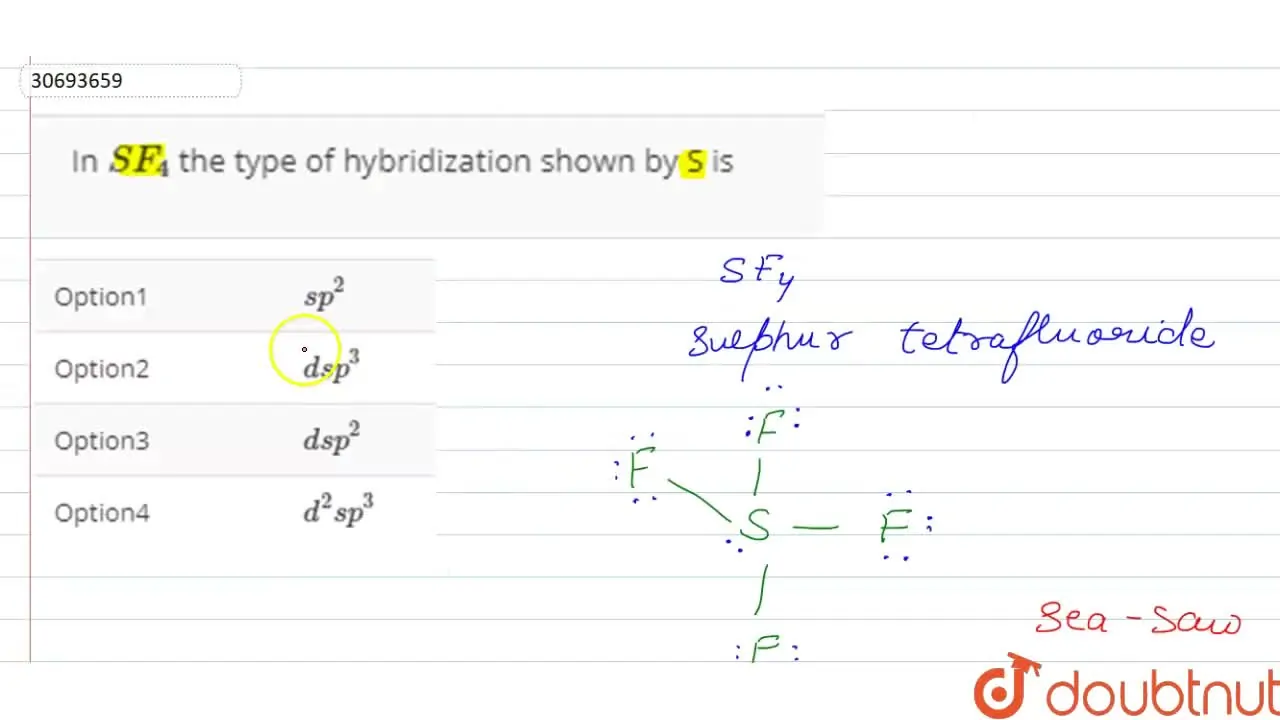 30693659
In SF₄ the type of hybridization shown by S is
Option1 sp²
Option2 dsp³
Option3 dsp²
Option4 d²sp³
SF₄
sulphur tetrafluoride
F
F
S — F
F
sea-saw
doubtnut